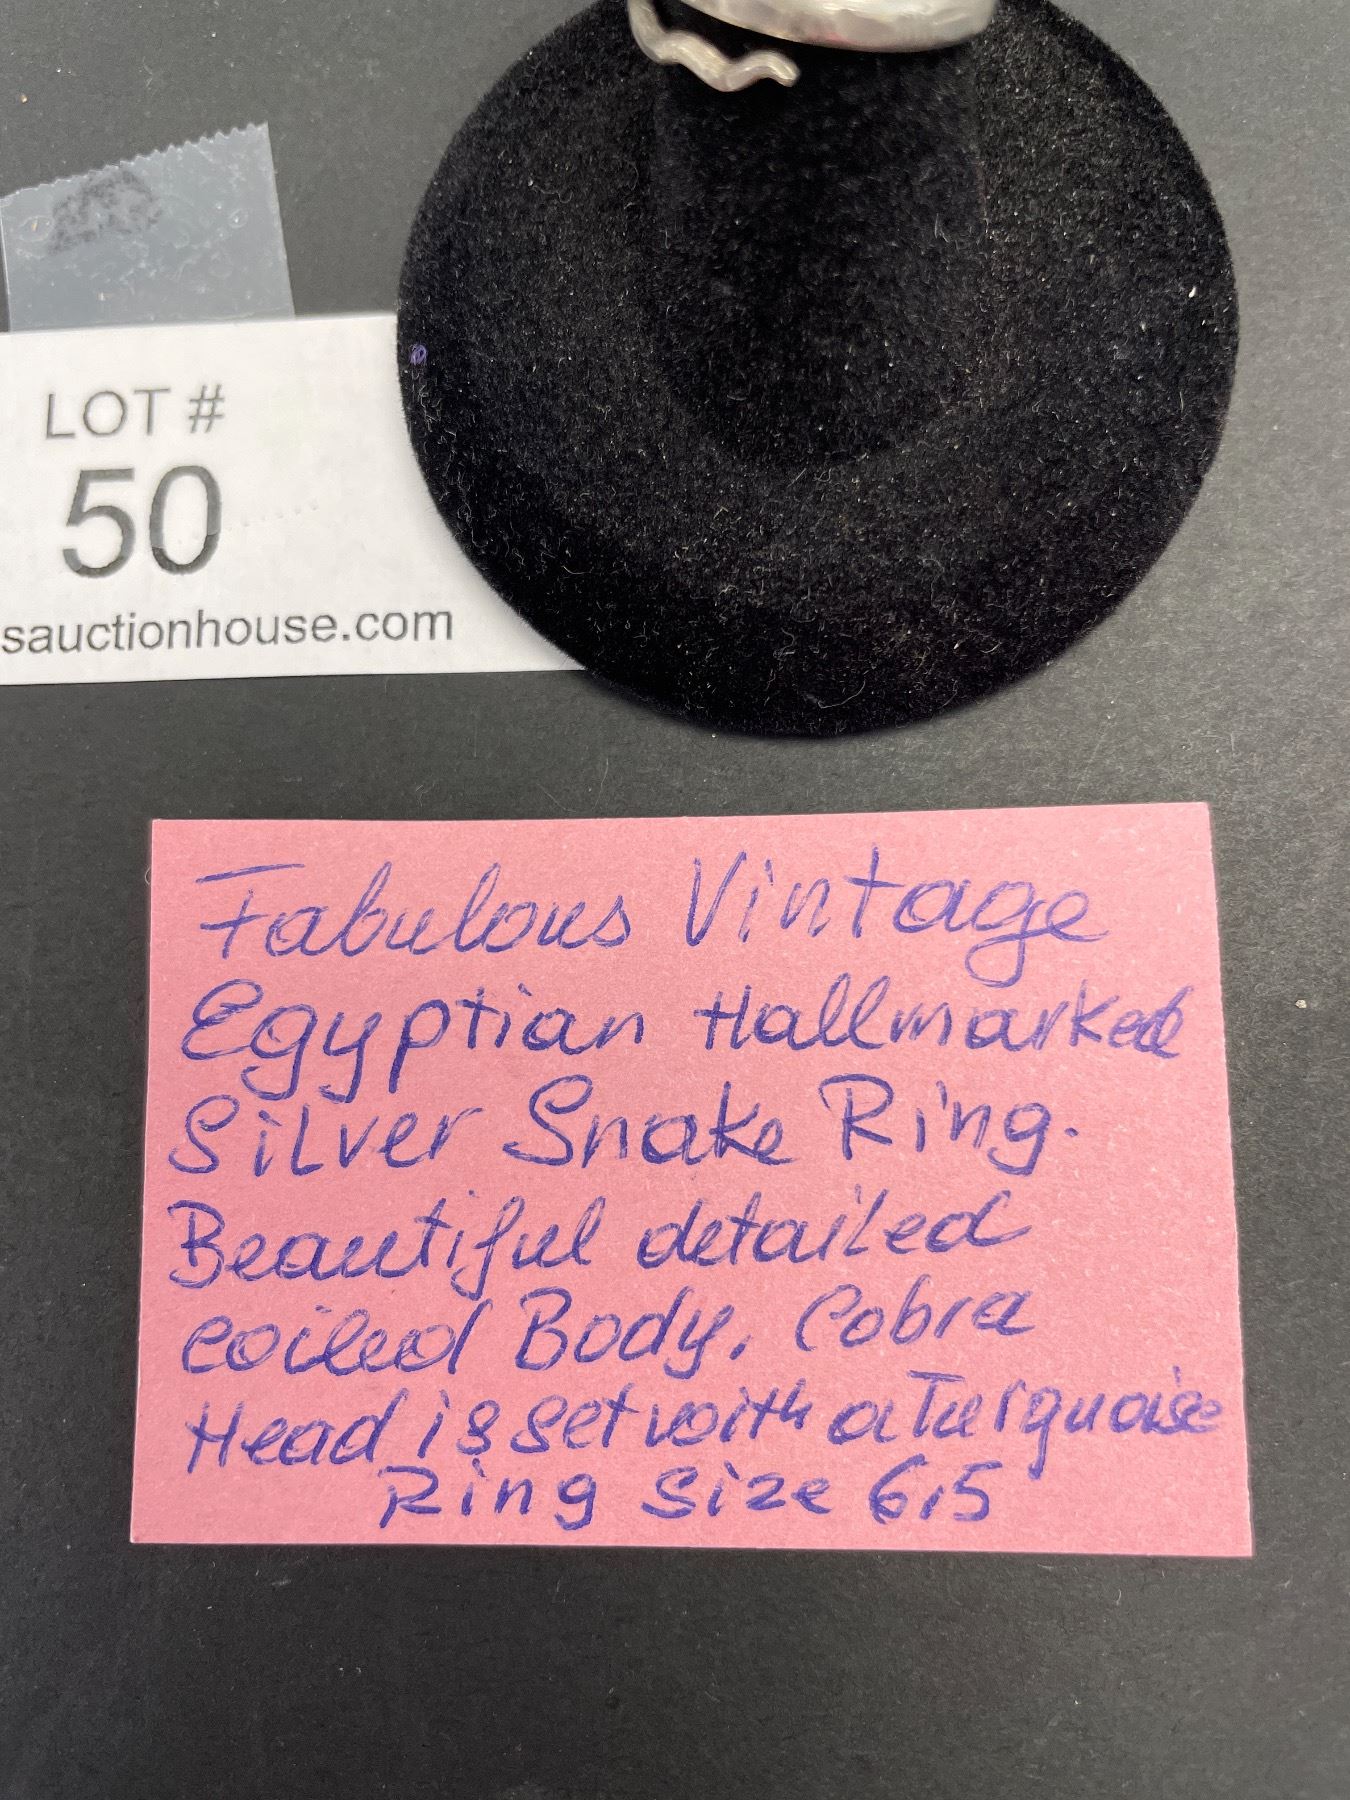 LOT #
50
sauctionhouse.com
Fabulous Vintage
Egyptian Hallmarked
Silver Snake Ring.
Beautiful detailed
coiled Body. Cobra
Head is set with a Turquoise
Ring Size 6,5